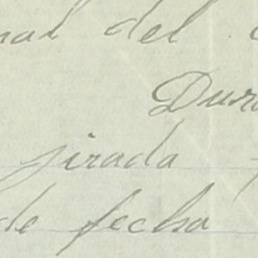 nal del
Dura
jirada
de fecha